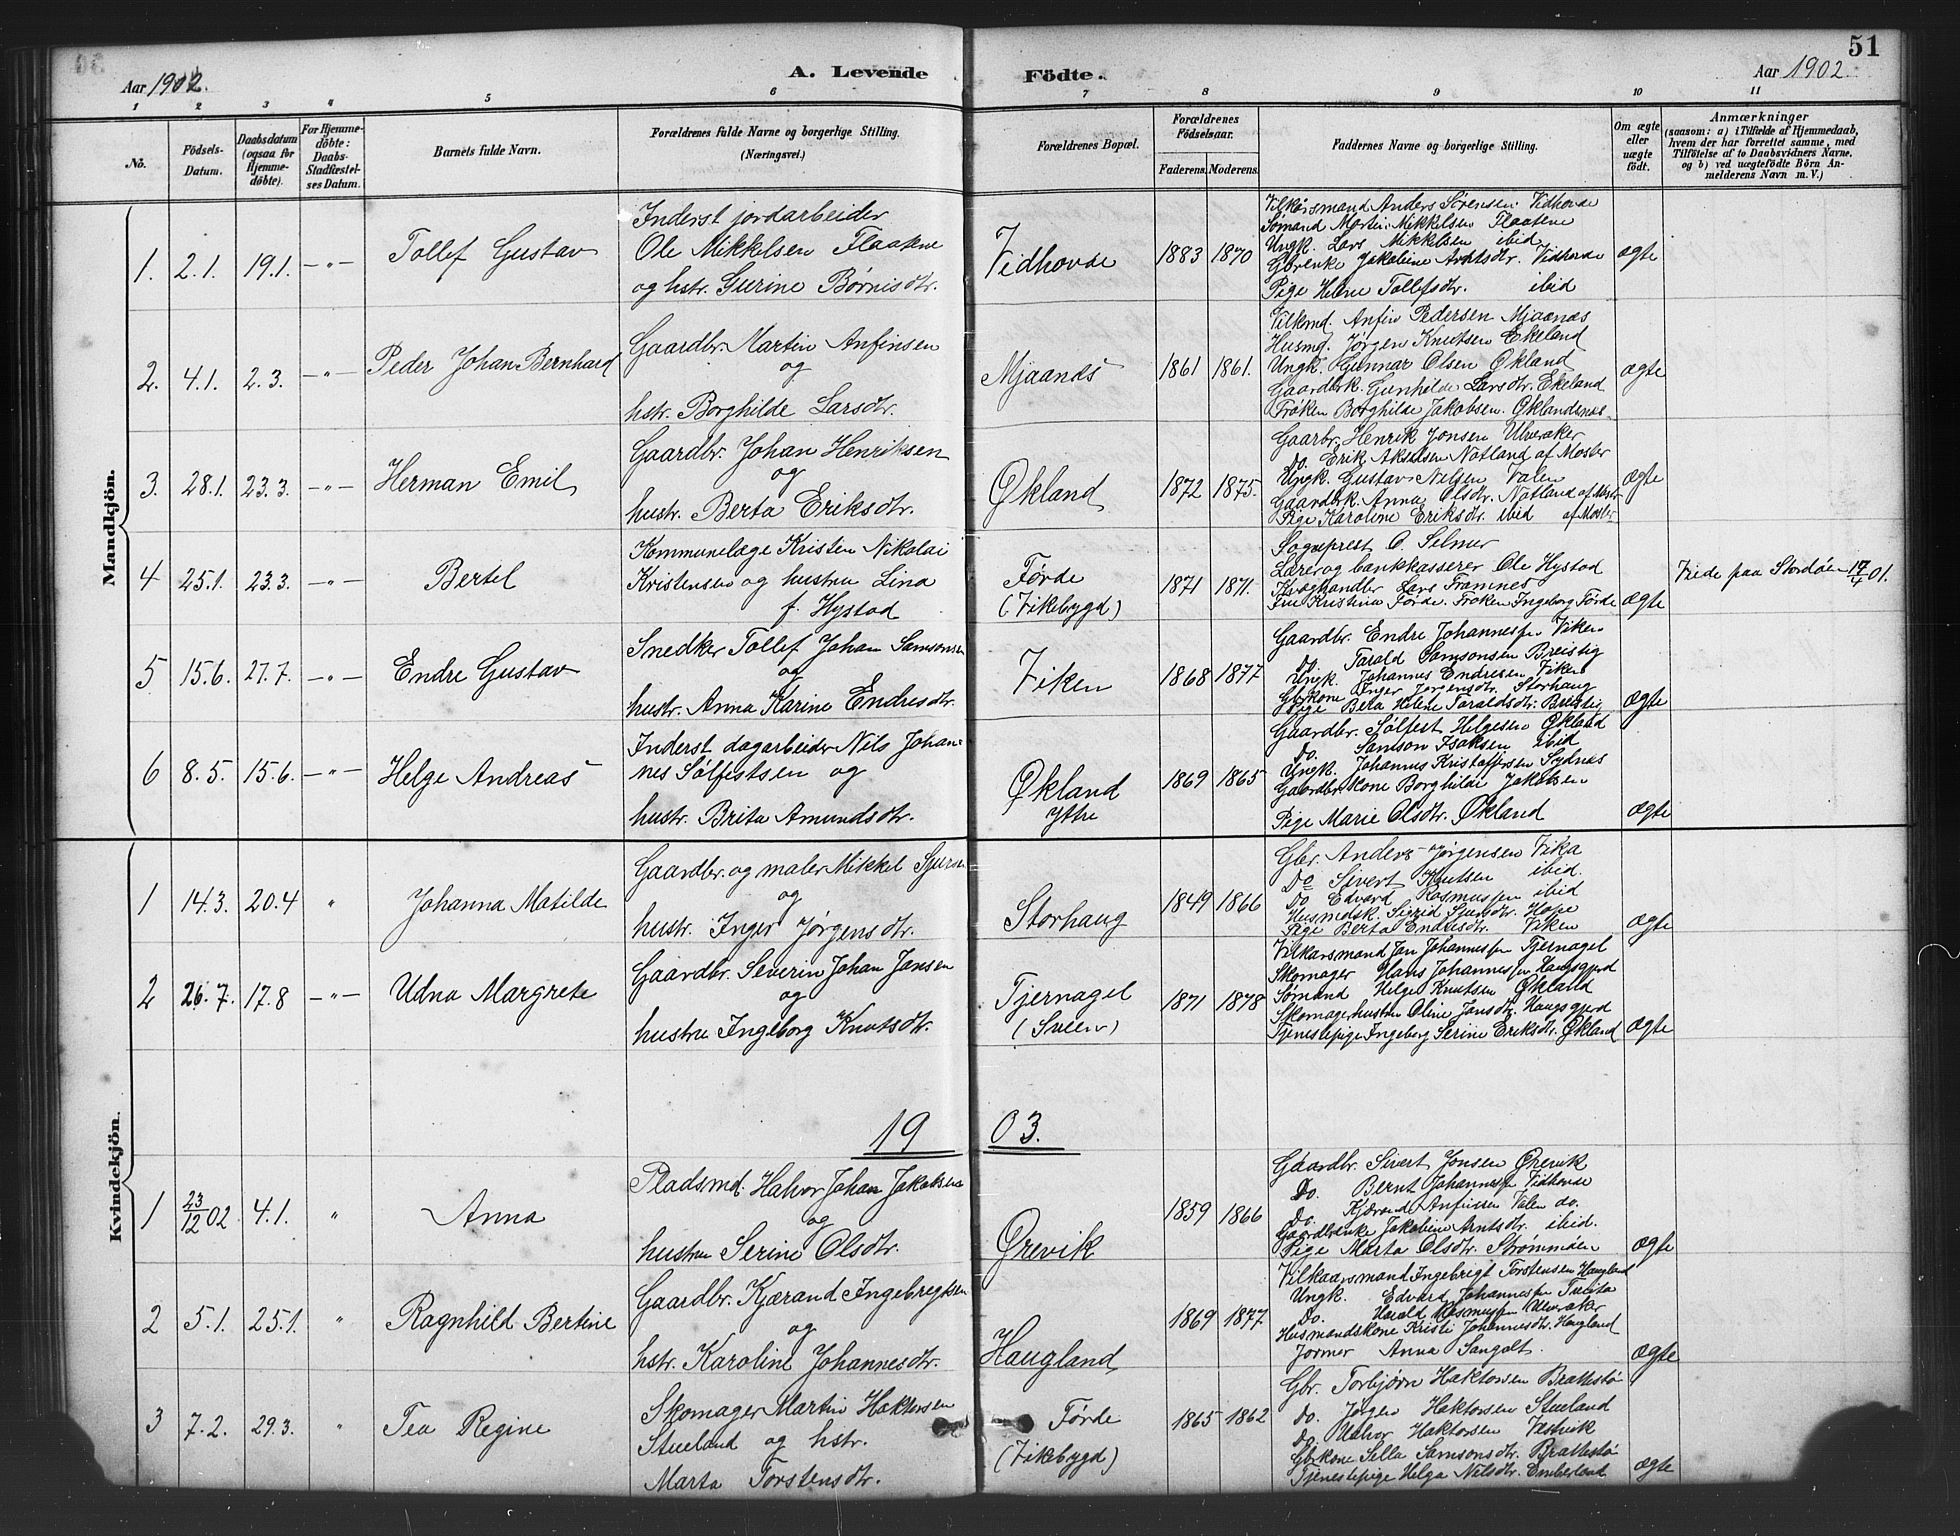 51
Aar 1902.
A. Levende Födte.
Aar 1902
1 2 3 4 5 6 7 8 9 10 11
No.
Födsels-Datum.
Daabsdatum (ogsaa for Hjemme-döbte).
For Hjemme-döbte: Daabs-Stadfæstel-ses Datum.
Barnets fulde Navn.
Forældrenes fulde Navne og borgerlige Stilling.
(Næringsvei.)
Forældrenes Bopæl.
Forældrenes Födselsaar.
Faderens. Moderens.
Faddernes Navne og borgerlige Stilling.
Om ægte eller uægte födt.
Anmærkninger
(saasom: a) i Tilfælde af Hjemmedaab, hvem der har forrettet samme, med Tilföielse af to Daabsvidners Navne, og b) ved uægtefödte Börn An-melderens Navn m. V.)
Mandkjön.
1. 2.1. 19.1. —"— Tollef Gustav
Inderst jordarbeider
Ole Mikkelsen Flaatene
og hstr. Surine Børnisdtr.
Vidhovde 1883 1870
Vilkårsmand Anders Sørensen Vidhovde
Sømand Martin Mikkelsen Flaatene
Ungk. Lars Mikkelsen ibid
Gbrenke Jakobine Arntsdtr. Vidhovde
Pige Helene Tollefsdtr. ibid
ægte
2. 4.1. 2.3. —"— Peder Johan Bernhard
Gaardbr. Martin Anfinsen
og
hstr. Borghilde Larsdtr.
Mjaanæs 1861 1861.
Vilkmd. Anfin Pedersen Mjaanæs
Husmd. Jørgen Knutsen Ekeland
Ungk. Gunnar Olsen Økland
Gaardbrk. Gunhilde Larsdtr. Ekeland
Frøken Borghilde Jakobsen. Øklandsnæs.
ægte
3. 28.1. 23.3. —"— Herman Emil
Gaardbr. Johan Henriksen
og
hustr. Berta Eriksdtr.
Økland 1872 1875.
Gaarbr. Henrik Jonsen Ulveraker
Do. Erik Akselsen Notland af Moster
Ungk. Gustav Nilsen Valen
Gaardbrk. Anna Olsdtr. Notland af Moster
Pige Karoline Eriksdtr. ibid af Moster
ægte
4 25.1. 23.3. —"— Bertel
Kommunelæge Kristen Nikolai
Kristensen og hustru Lina
f. Hystad
Førde
(Vikebygd)
1871 1871.
Sogneprest O. Selmer
Lærer og bankkasserer Ole Hystad
Kvæghandler Lars Framnes
Fru Kristina Førde. Frøken Ingeborg Førde
ægte
Viede paa Stordøen 17/4 01.
5 15.6. 27.7. —"— Endre Gustav
Snedker Tollef Johan Samsonsen
og
hustr. Anna Karine Endresdtr.
Viken 1868 1877
Gaardbr. Endre Johannessen Viken
Do. Tarald Samsonsen Breistig
Ungk. Johannes Endresen Viken
Gbrkone Inger Jørgensdtr. Storhaug
Pige Berta Helene Taraldsdtr. Breistig
ægte
6 8.5. 15.6. —"— Helge Andreas
Inderst dagarbeider Nils Johan-
nes Sølfestsen og
hustr. Brita Amundsdtr.
Økland
Ytre
1869 1865
Gaardbr. Sølfest Helgesen Økland
Do. Samson Isaksen ibid
Ungk. Johannes Kristoffersen Sydnæs
Gaardbrkone Borghilde Jakobsen
Pige Marie Olsdtr. Økland
ægte
Kvindekjön.
1 14.3. 20.4 " Johanna Matilde
Gaardbr. og maler Mikkel Sjursen
og
hustr. Inger Jørgensdtr.
Storhaug 1849 1866
Gbr. Anders Jørgensen Vika
Do Sivert Knutsen ibid.
Do. Edvard Rasmussen ibid
Husmdsk. Sigrid Sjursdtr. Hope
Pige Berta Endresdtr. Viken
ægte
2 26.7. 17.8 —"— Udna Margrete
Gaardbr. Severin Johan Jansen
og
hustru Ingeborg Knutsdtr.
Tjernagel
(Sveen)
1871 1878
Vilkårsmand Jan Johannessen Tjernagel
Skomager Hans Johannessen Haugsgjerd
Sømand Helge Knutsen Økland
Skomagerhustru Oline Jansdtr. Haugsgjerd
Tjenestepige Ingeborg Serine Eriksdtr. Økland
ægte
19 03.
1 23/12 02 4.1. " Anna
Pladsmd. Halvor Johan Jakobsen
og
hustru Serine Olsdtr.
Ørevik 1859 1866
Gaardbr. Sivert Jonsen Ørevik
Do. Bernt Johannessen Vidhovde
Do. Kjærand Anfinsen Valen do.
Gaardbrenke Jakobine Arntsdtr. ibid.
Pige Marta Olsdtr. Strømmøen
ægte
2 5.1. 25.1. " Ragnhild Bertine
Gaardbr. Kjærand Ingebrigtsen
og
hstr. Karoline Johannesdtr.
Haugland 1869 1877
Vilkaarsmand Ingebrigt Torstensen Haugland
Ungk. Edvard Johannessen Tveita
Do. Harald Rasmussen Ulveraker
Husmandskone Kristi Johannesdtr. Haugland
Jormor Anna Sangolt.
ægte
3 7.2. 29.3. " Tea Regine
Skomager Martin Haktorsen
Stueland og hstr.
Marta Torstensdtr.
Førde
(Vikebygd)
1865 1862
Gbr. Torbjørn Haktorsen Brattestø
Do. Jørgen Haktorsen Stueland
Do Halvor Haktorsen Vestvik
Gbrkone Sella Samsonsdtr. Brattestø
Tjenestepige Helga Nilsdtr. Emberland
ægte